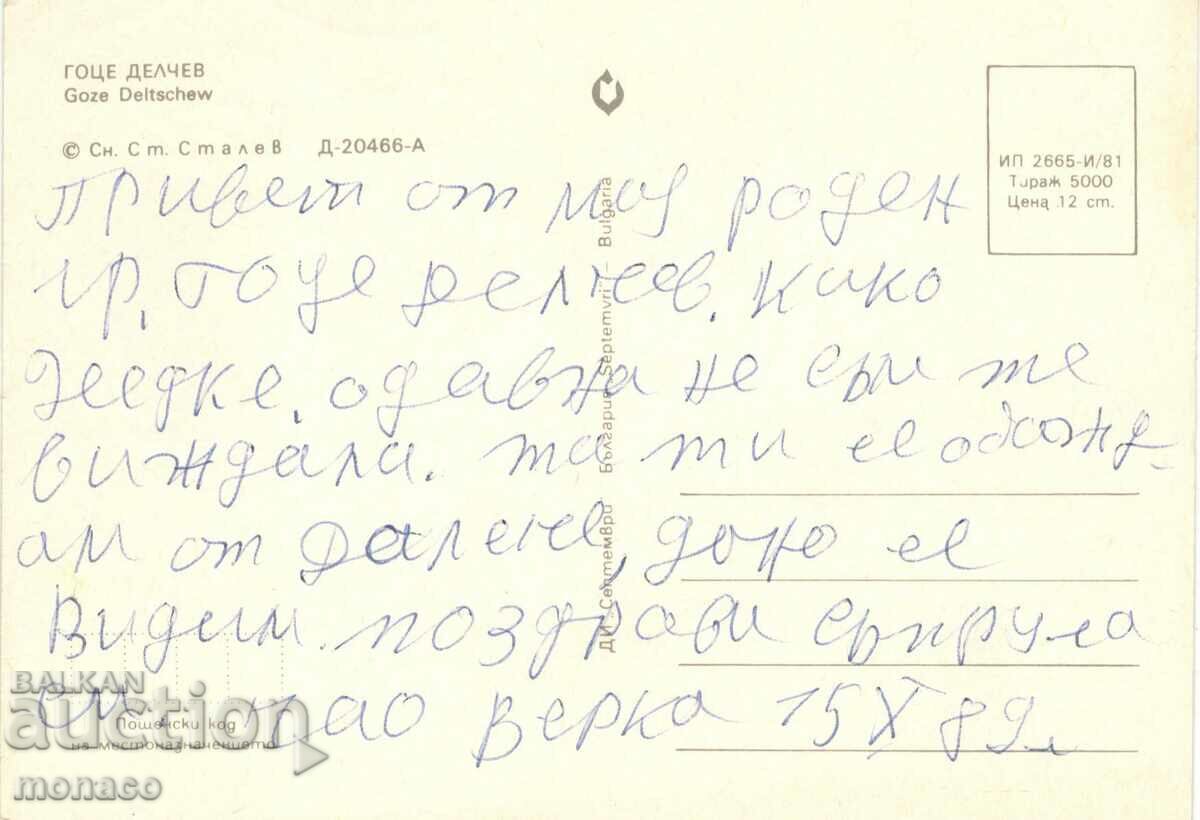 ГОЦЕ ДЕЛЧЕВ
Goze Deltschew
© Сн. Ст. Сталев Д-20466-А
ИП 2665-И/81
Тираж 5000
Цена 12 ст.
ДИ „Септември" България Septemvri – Bulgaria
Привет от моя роден
гр. Гоце Делчев. Како
Жедке, одавна не съм те
виждала. та ти се обажд-
ам от далече, доко се
видим. поздрави съпруга
си, чао Верка 15 X 89
Пощенски код
на местоназначението
BALKAN
auction
monaco